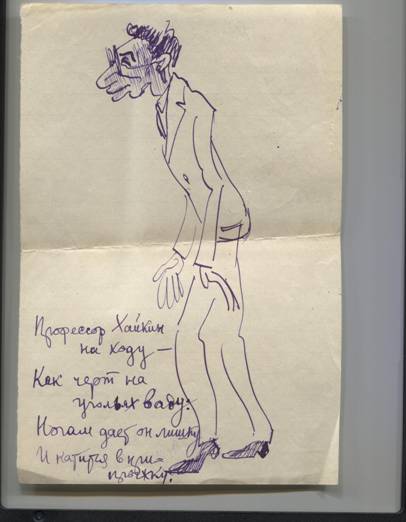 Профессор Хайкин
на ходу —
Как черт на
угольях в аду:
Ногам дает он лишку
И катится в при-
прыжку.